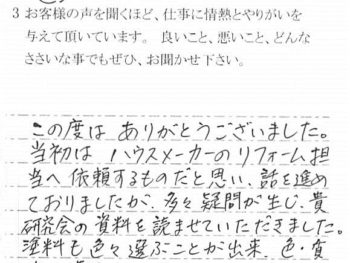 3 お客様の声を聞くほど、仕事に情熱とやりがいを
与えて頂いています。 良いこと、悪いこと、どんな
ささいな事でもぜひ、お聞かせ下さい。
この度は ありがとうございました。
当初は ハウスメーカーのリフォーム担
当へ依頼するものだと思い、話を進め
ておりましたが、多々疑問が生じ、貴
研究会の資料を読ませていただきました。
塗料も色々選ぶことが出来、色・質